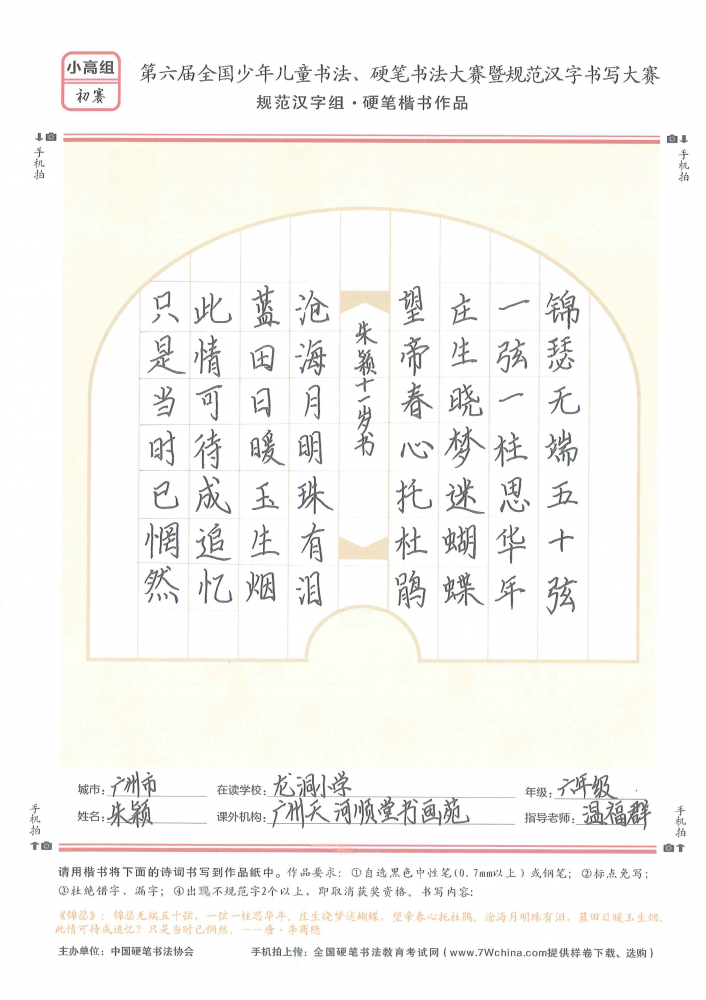 小高组
初赛
第六届全国少年儿童书法、硬笔书法大赛暨规范汉字书写大赛
规范汉字组·硬笔楷书作品
手机拍
手机拍
锦瑟无端五十弦
一弦一柱思华年
庄生晓梦迷蝴蝶
望帝春心托杜鹃
朱颖十一岁书
沧海月明珠有泪
蓝田日暖玉生烟
此情可待成追忆
只是当时已惘然
城市：广州市 在读学校：龙洞小学 年级：六年级
姓名：朱颖 课外机构：广州天河顺堂书画苑 指导老师：温福群
手机拍
手机拍
请用楷书将下面的诗词书写到作品纸中。作品要求：①自选黑色中性笔(0.7mm以上)或钢笔；②标点免写；
③杜绝错字、漏字；④出现不规范字2个以上，即取消获奖资格。书写内容：
《锦瑟》：锦瑟无端五十弦，一弦一柱思华年。庄生晓梦迷蝴蝶，望帝春心托杜鹃。沧海月明珠有泪，蓝田日暖玉生烟。
此情可待成追忆？只是当时已惘然。——唐·李商隐
主办单位：中国硬笔书法协会 手机拍上传：全国硬笔书法教育考试网（www.7Wchina.com提供样卷下载、选购）